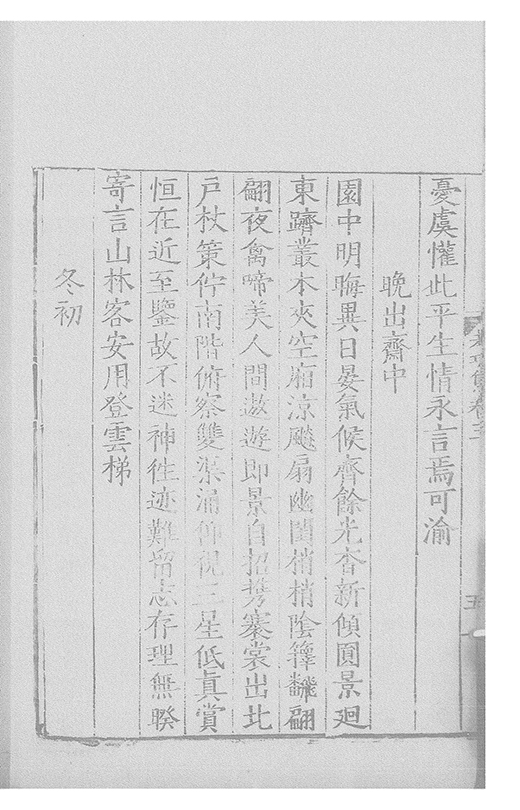 憂虞懽此平生情永言焉可渝
晚出齋中
園中明晦異日晏氣候齊餘光杳新傾圓景廻
東躋叢本夾空廂涼飈扇幽閨梢梢陰籜飜翩
翩夜禽啼美人間遨遊即景自招携褰裳出北
戶杖策佇南階俯察雙渠涌仰視三星低真賞
恒在近至鑒故不迷神徃迹難留志存理無睽
寄言山林客安用登雲梯
冬初
五